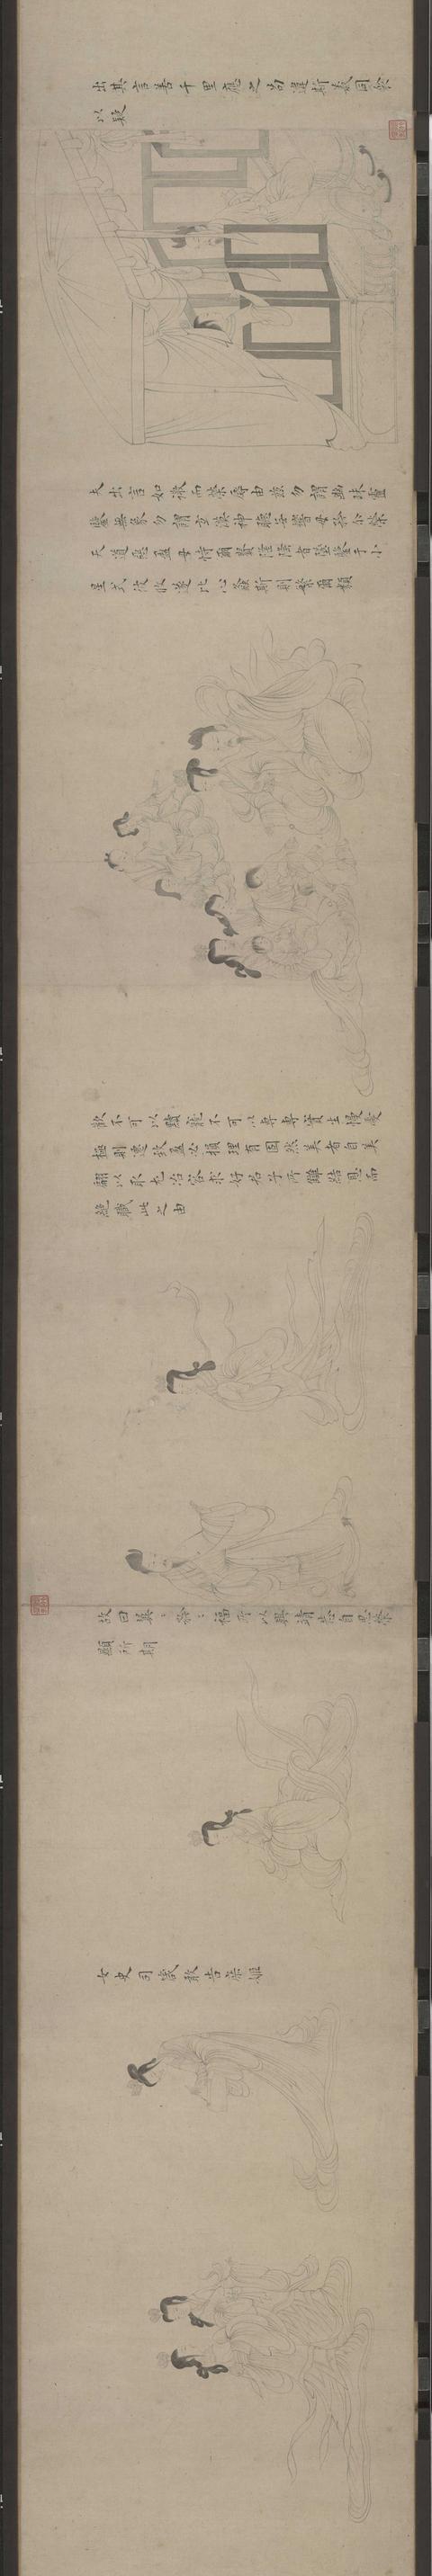 出其言善千里應之苟違斯義同衾
以疑
夫出言如微而榮辱由茲勿謂幽昧靈
鑒無象勿謂玄漠神聽無響毋矜尔榮
天道惡盈毋恃爾貴隆隆者墜鑒于小
星戒彼攸遂比心螽斯則繁爾類
歡不可以黷寵不可以專專實生慢愛
極則遷致盈必損理有固然美者自美
翩以取尤冶容求好君子所讎結恩而
絕職此之由
故曰翼〻矜〻福所以興靖恭自思榮
顯所期
女史司箴敢告庶姬